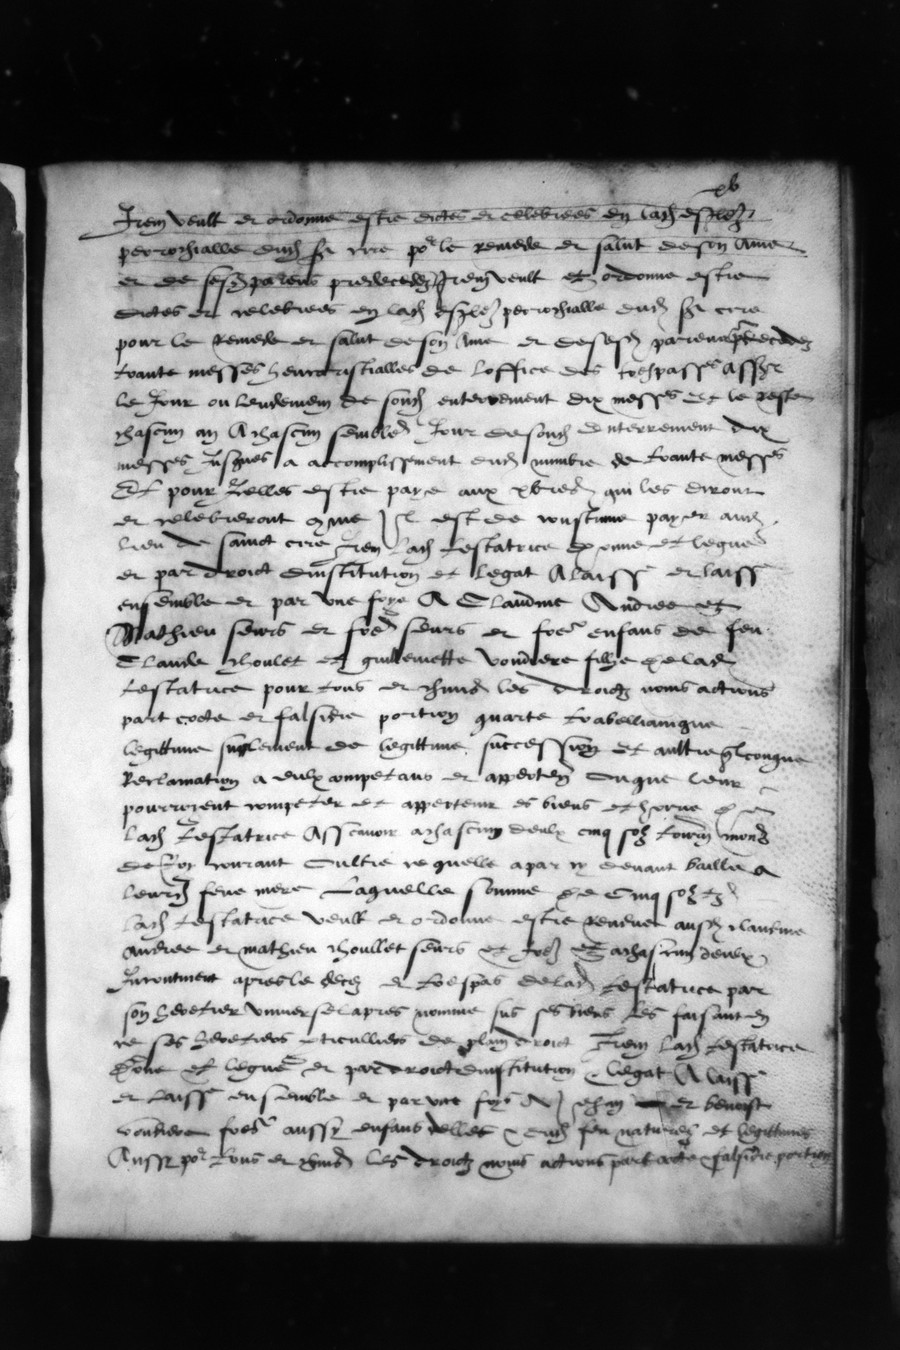 xv
Item veult et ordonne estre dictes et celebrees en lad esglez
perrochialle dud st cire por le remede et salut de son ame
et de ses parens predecedez Item veult et ordonne estre
dictes et celebrees en lad esglez perrochialle dud st cire
pour le remede et salut de son ame et de ses parens predecedez
trante messes de loffice des trespasses
le Jour ou lendemein de soud enterrement dix messes et le reste
chascun an a chascun semble Jour de soud enterrement dix
messes Jusques a accomplissement dud numbre de trante messes
Et pour Jcelles estre paye aux qui les diront
et celebreront come il est de coustume payer aud
lieu de sainct cire Item lad testatrice donne et legue
et par droict dinstitution et legat a laisse et laisse
ensemble et par une foys a Claudine Andree et
Mathieu seurs et freres enfans de feu
Claude Choulet et guillemette vondiere fille de lad
testatrice pour tous et chuns les droictz noms actions
part cocte et falsidie portion quarte trabellianique
legittime suplement de legittime succession et aultre qlconque
Reclamation a eulx competans et que leur
pourroient competer et appertenir es biens et hoirie de
lad testatrice Asscavoir a chascun deulx cinq solz tourn monoe
de Roy courant Oultre ce quelle a par cy devant baille a
leurd feue mere Laquelle somme de Cinq solz tz
lad testatrice veult et ordonne estre rendue ausd claudine
andree et mathieu choullet seurs et freres Et a chascun deulx
Incontinent apres le deces et trespas de lad testatrice par
son heretier universel apres nomme sus ses biens les faisant en
ce ses heretiers pticulliers de plain droict Item lad testatrice
done et legue et par droict dinstitution legat a laisse
et laisse ensemble et par une foys a et benoist
vondiere freres aussy enfans delles dud feu naturelz et legittimes
Aussy por tous et chuns les droictz noms actions part cocte falsidie portion